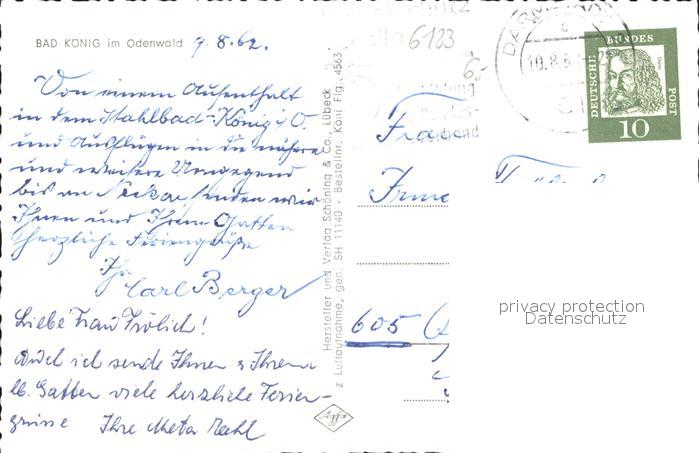 BAD KÖNIG im Odenwald 9.8.62.
6123
Von einem Aufenthalt
in dem Stahlbad-König i/O.
und Ausflügen in die nähere
und weitere Umgegend
bis an Neckar, senden wir
Ihnen und Ihrem Gatten
herzliche Feriengrüße
Ihr
Carl Berger
Liebe Frau Frölich!
Auch ich sende Ihnen & Ihrem
lb. Gatten viele herzliche Ferien-
grüsse Ihre Meta
Hersteller und Verlag Schöning & Co., Lübeck
z Luftaufnahme, gen. SH 11140 - Bestellnr. Köni Flg. 4563
Agfa
Frau
Irme
605
DARM
10.8.6
DEUTSCHE
BUNDES
POST
Dürer
10
privacy protection
Datenschutz